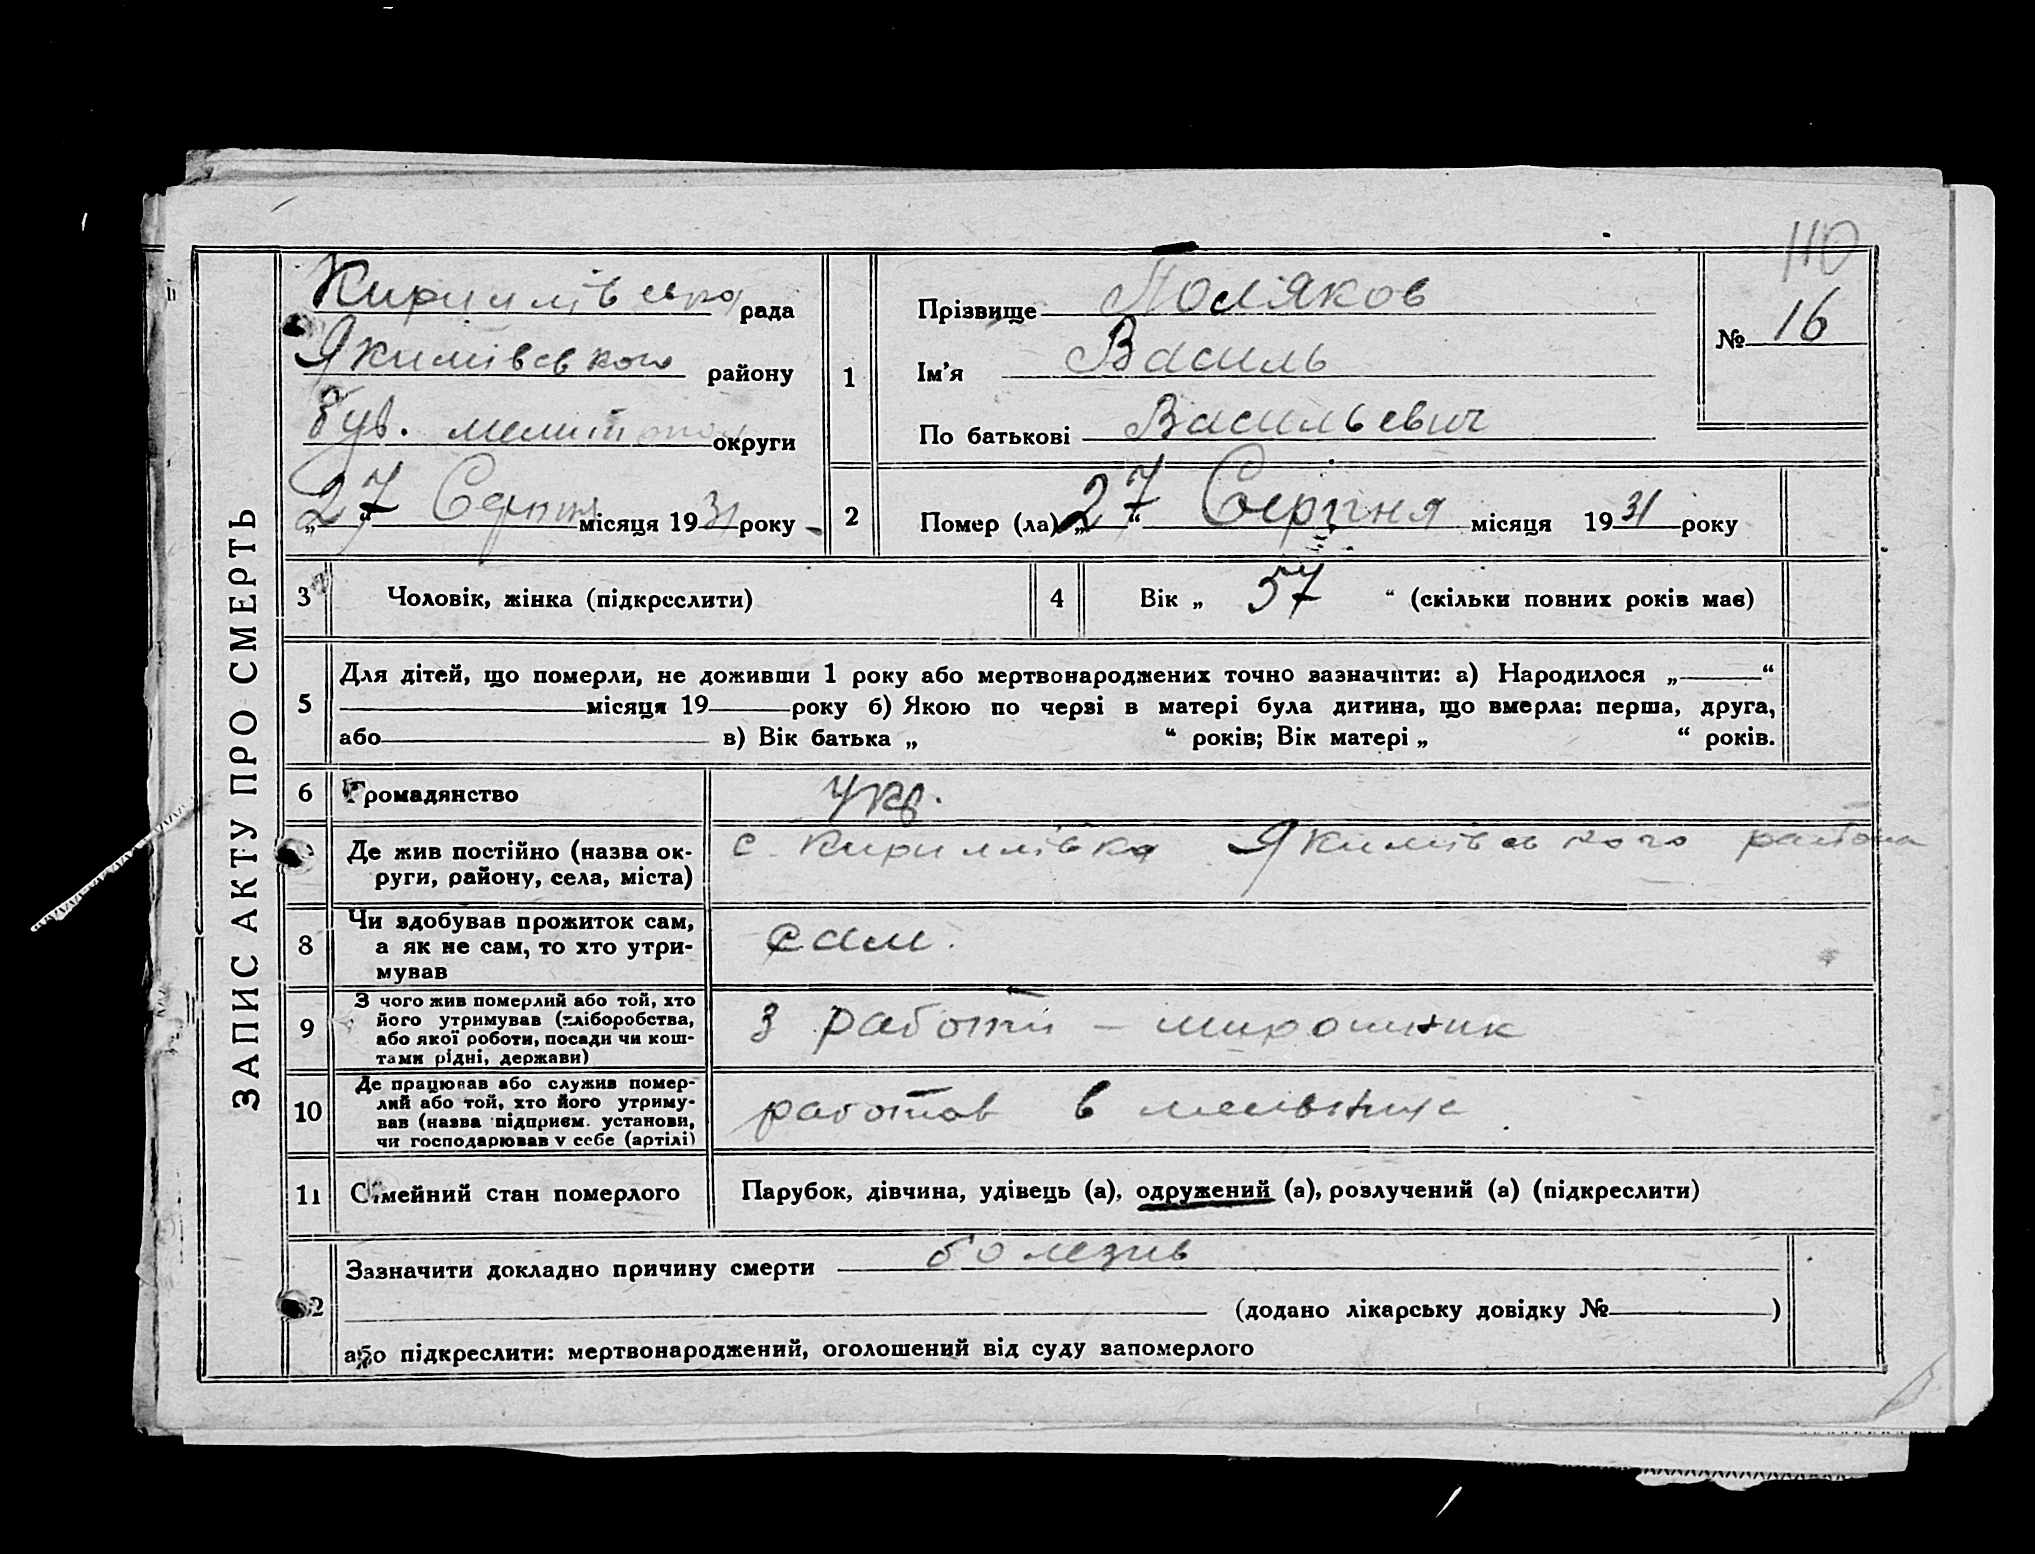 110
ЗАПИС АКТУ ПРО СМЕРТЬ
Кириллівська рада
Якимівського району
був. мелитопол округи
„27“ Серпня місяця 1931 року
1
Прізвище Поляков
Ім’я Василь
По батькові Васильевич
№ 16
2
Помер (ла) „27“ Серпня місяця 1931 року
3 Чоловік, жінка (підкреслити)
4 Вік „ 57 “ (скільки повних років має)
5
Для дітей, що померли, не доживши 1 року або мертвонароджених точно зазначити: а) Народилося „ “
місяця 19 року б) Якою по черві в матері була дитина, що вмерла: перша, друга,
або в) Вік батька „ “ років; Вік матері „ “ років.
6 Громадянство укр.
Де жив постійно (назва ок-
руги, району, села, міста)
с. Кириллівка Якимівського района
8
Чи здобував прожиток сам,
а як не сам, то хто утри-
мував
сам.
9
З чого жив померлий або той, хто
його утримував (хліборобства,
або якої роботи, посади чи кош-
тами рідні, держави)
З работи — мирошник
10
Де працював або служив помер-
лий або той, хто його утриму-
вав (назва підприєм. установи,
чи господарював у себе (артілі)
работав в мельнице
11 Сімейний стан померлого
Парубок, дівчина, удівець (а), одружений (а), розлучений (а) (підкреслити)
12
Зазначити докладно причину смерти болезнь
(додано лікарську довідку № )
або підкреслити: мертвонароджений, оголошений від суду запомерлого